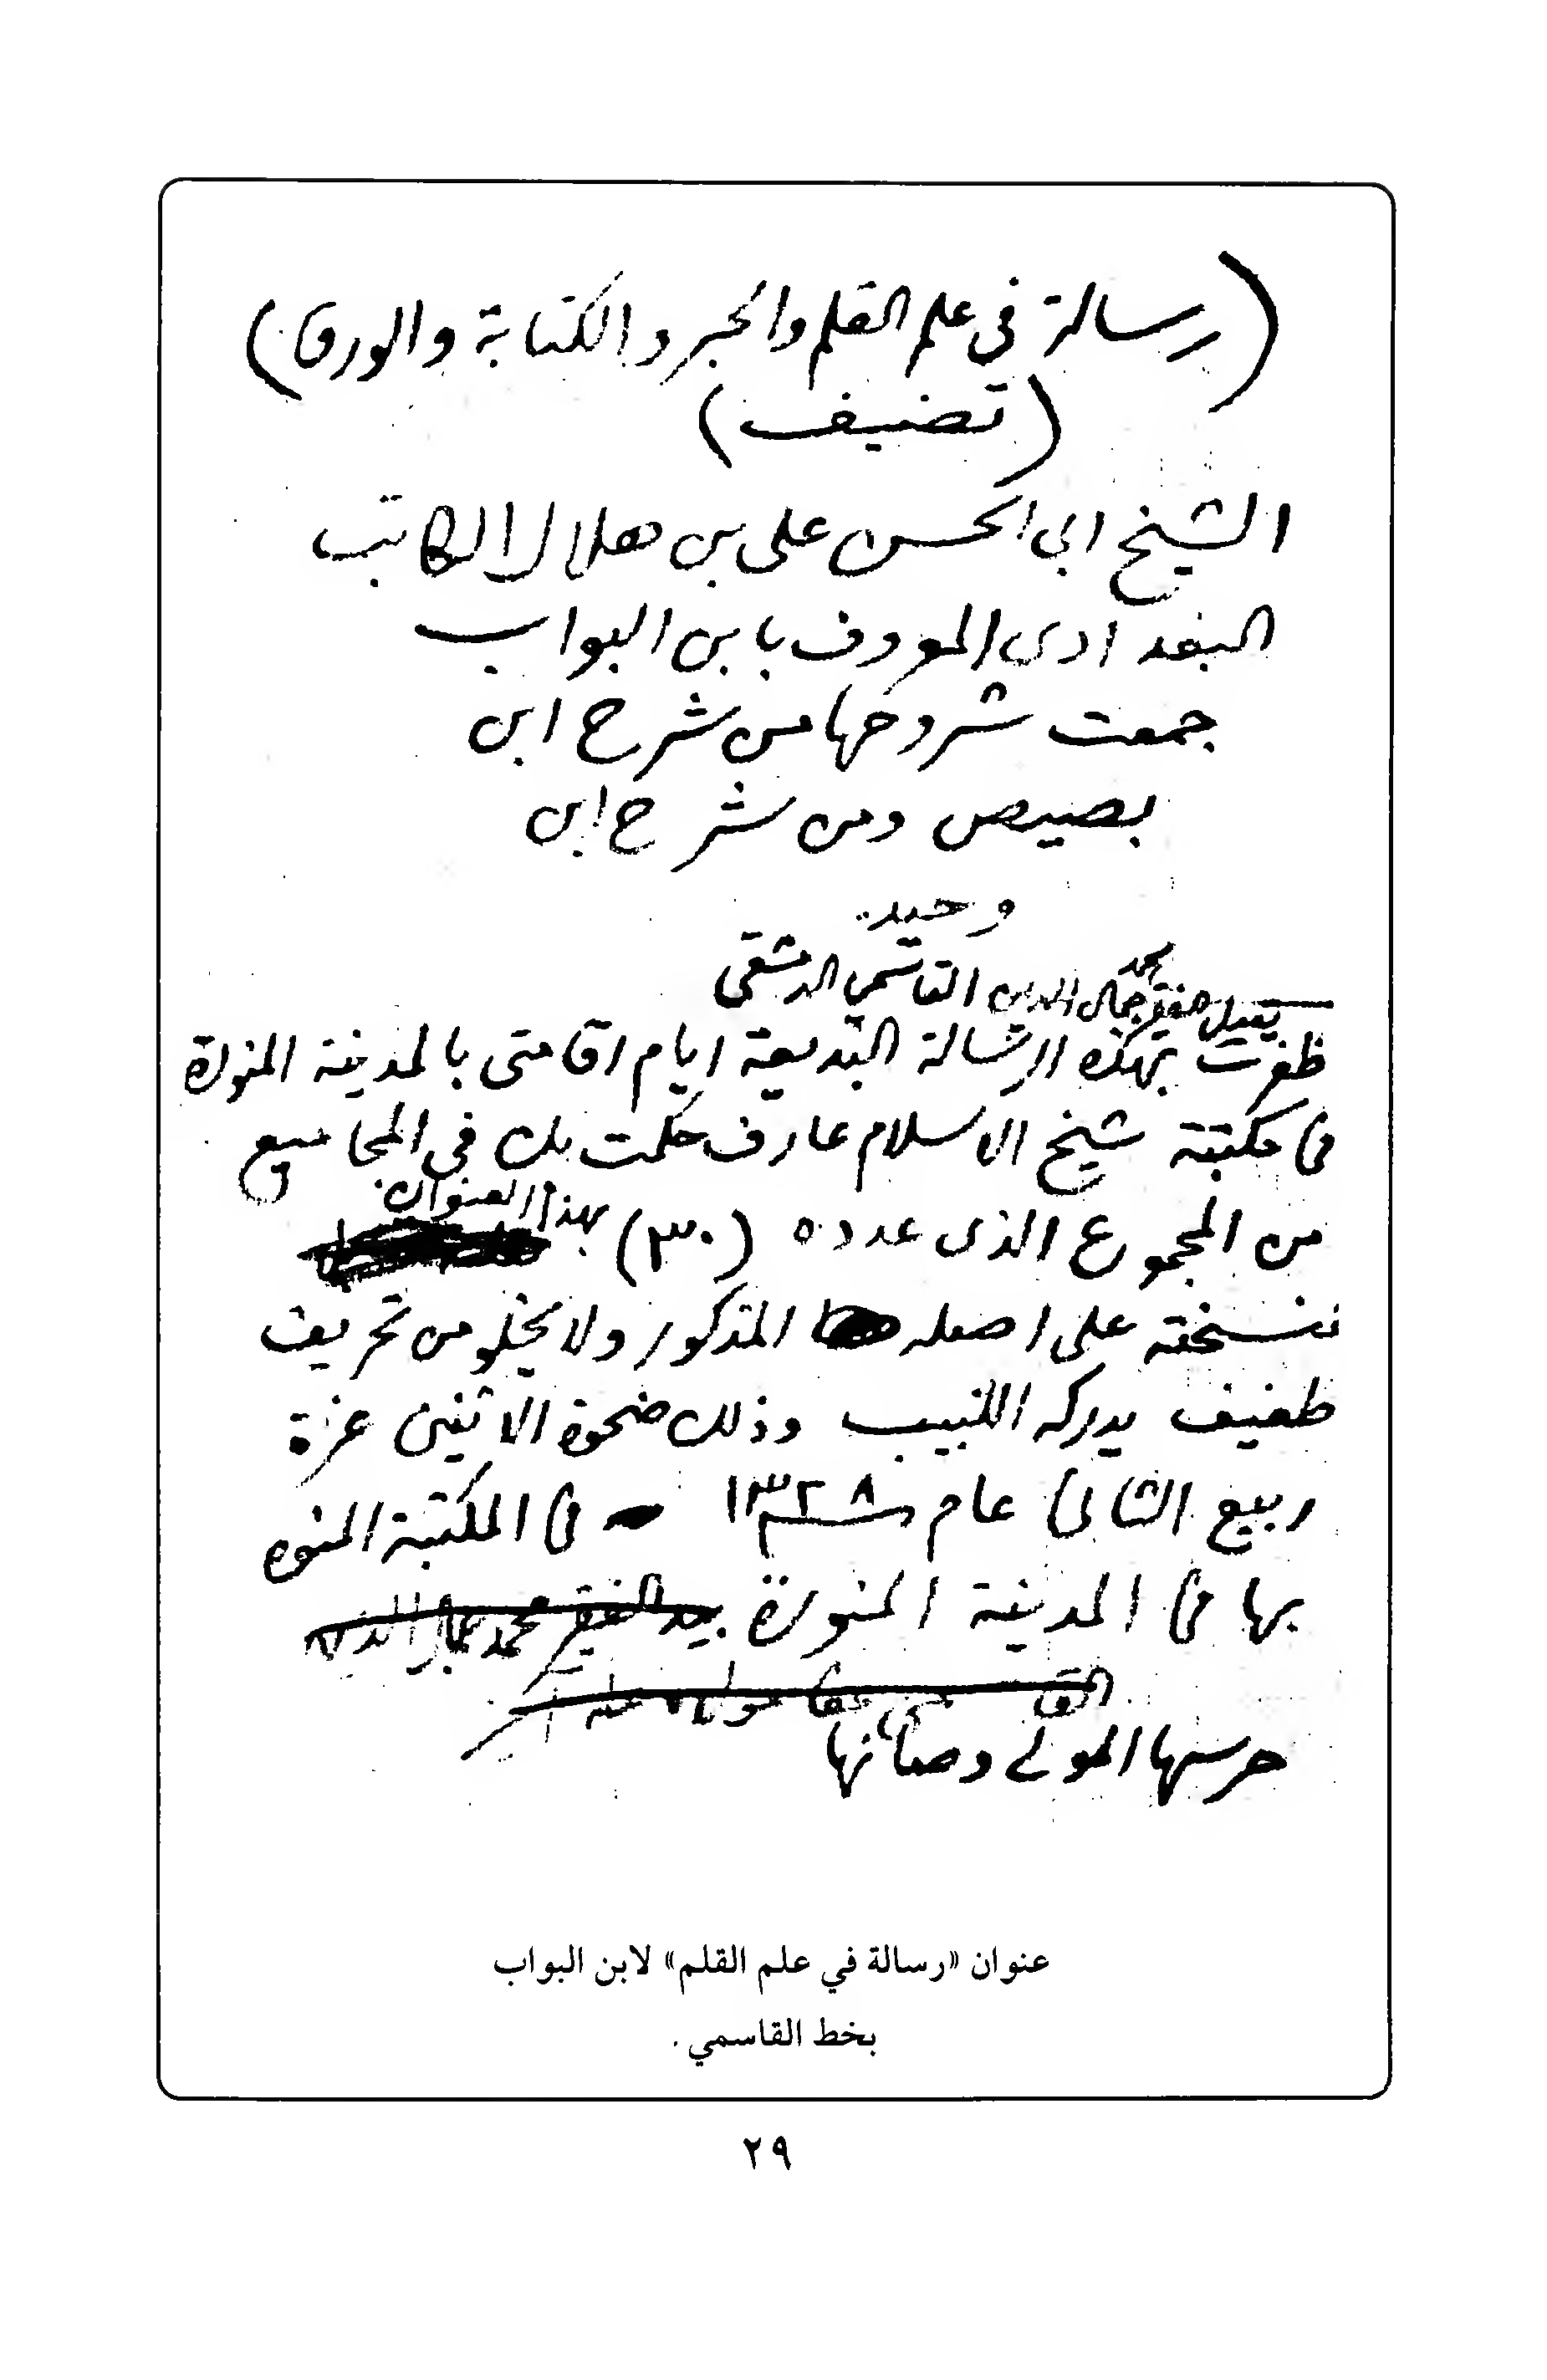 (رسالة في علم القلم والحبر والكتابة والورق)
(تصنيف)
الشيخ ابى الحسن على بن هلال الكاتب
البغدادى المعروف بابن البواب
جمعت شروحها من شرح ابن
بصيص ومن شرح ابن
وحيد
يقول الفقير محمد جمال الدين القاسمي الدمشقى
ظفرت بهذه الرسالة البديعة ايام اقامتى بالمدينة المنورة
فى مكتبة شيخ الاسلام عارف حكمت بك فى المجاميع
من المجموع الذى عدده (٣٠) بهذا العنوان
فنسخته على اصله المذكور ولا يخلو من تحريف
طفيف يدركه اللبيب وذلك ضحوة الاثنين غرة
ربيع الثانى عام ١٣٢٨ فى المكتبة المنوه
بها فى المدينة المنورة بيد الفقير محمد جمال الدين
القاسمى عفا مولاه عنه
حرسها المولى وصانها
عنوان «رسالة في علم القلم» لابن البواب
بخط القاسمي.
٢٩